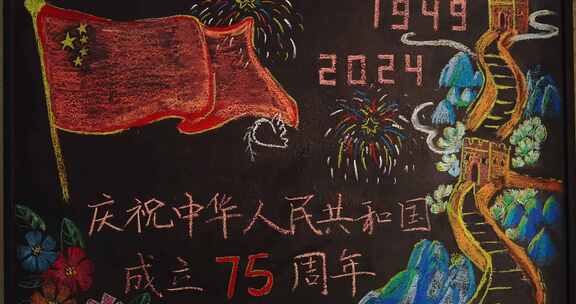 1949
2024
庆祝中华人民共和国
成立75周年